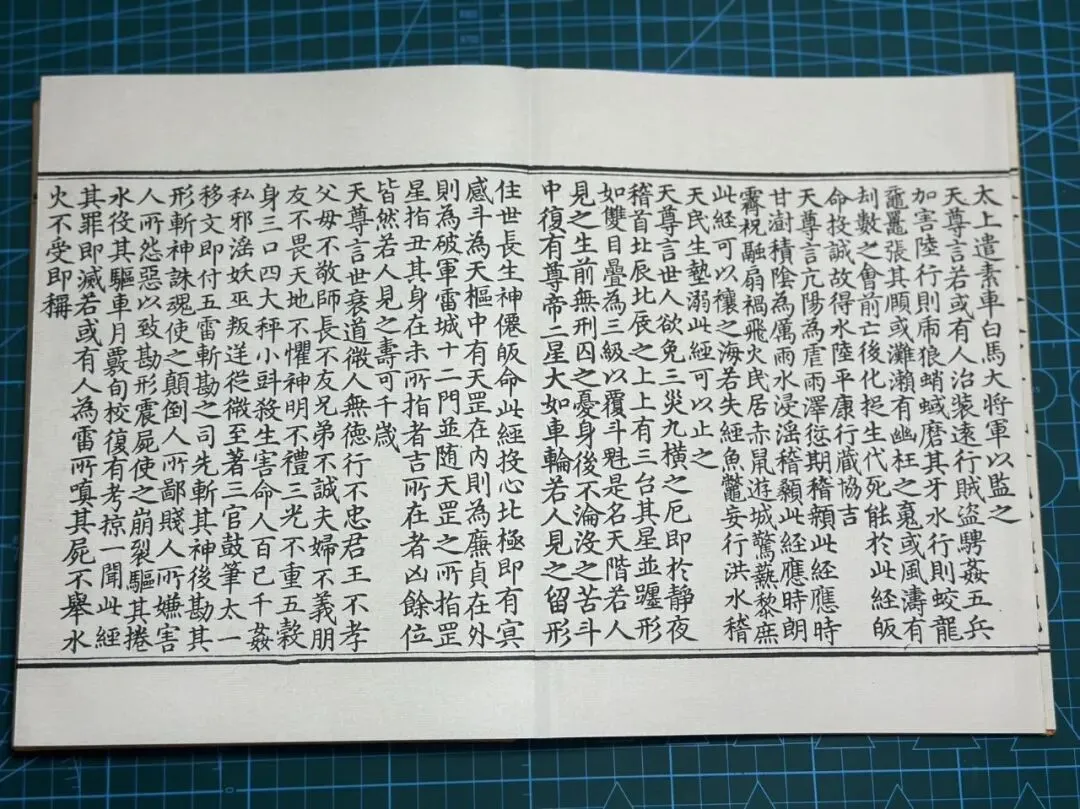 太上遣素車白馬大将軍以監之
天尊言若或有人治装遠行賊盗騁姦五兵
加害陸行則䖍狼蛸蜮磨其牙水行則蛟龍
黿鼉張其頥或灘瀨有幽枉之䰟或風濤有
刦數之會前亡後化捉生代死能於此經皈
命投誠故得水陸平康行蔵協吉
天尊言亢陽為虐雨澤愆期稽顙此經應時
甘澍積陰為厲雨水浸滛稽顙此經應時朗
霽祝融扇禍飛火民居赤鼠遊城驚爇黎庶
此經可以禳之海若失經魚鼈妄行洪水稽
天民生墊溺此經可以止之
天尊言世人欲免三災九横之厄即於静夜
稽首北辰北辰之上上有三台其星並躔形
如雙目疊為三級以覆斗魁是名天階若人
見之生前無刑囚之憂身後不淪没之苦斗
中復有尊帝二星大如車輪若人見之留形
住世長生神僊皈命此經投心北極即有冥
感斗為天樞中有天罡在内則為廉貞在外
則為破軍雷城十二門並随天罡之所指罡
星指丑其身在未所指者吉所在者凶餘位
皆然若人見之壽可千歳
天尊言世衰道微人無德行不忠君王不孝
父母不敬師長不友兄弟不誠夫婦不義朋
友不畏天地不懼神明不禮三光不重五榖
身三口四大秤小㪷殺生害命人百已千姦
私邪滛妖巫叛逆從微至著三官鼓筆太一
移文即付五雷斬勘之司先斬其神後勘其
形斬神誅魂使之顛倒人所鄙賤人所嫌害
人所怨惡以致勘形震屍使之崩裂驅其捲
水役其驅車月覈旬校復有考掠一聞此經
其罪即滅若或有人為雷所嗔其屍不舉水
火不受即稱